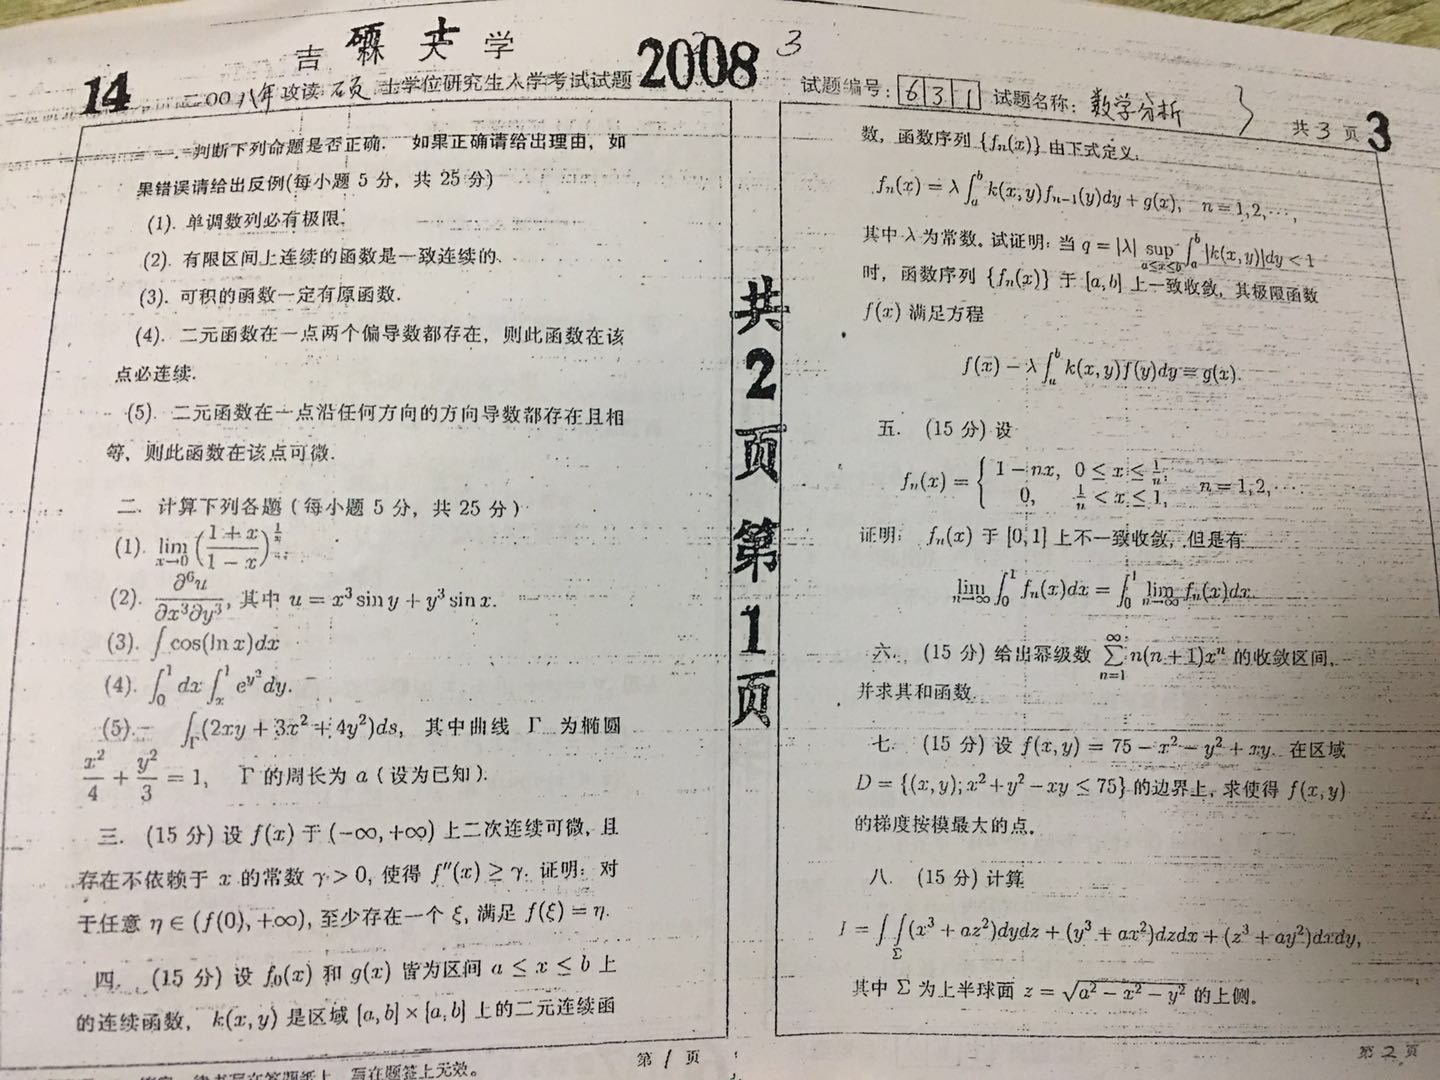 吉林大学
硕士
14
二00八年攻读硕士学位研究生入学考试试题
2008
3
试题编号: 631 试题名称: 数学分析
3
共3页
3
一. 判断下列命题是否正确. 如果正确请给出理由, 如
果错误请给出反例(每小题 5 分, 共 25 分)
(1). 单调数列必有极限.
(2). 有限区间上连续的函数是一致连续的.
(3). 可积的函数一定有原函数.
(4). 二元函数在一点两个偏导数都存在, 则此函数在该
点必连续.
(5). 二元函数在一点沿任何方向的方向导数都存在且相
等, 则此函数在该点可微.
二. 计算下列各题 (每小题 5 分, 共 25 分)
(1). lim_{x→0} ((1+x)/(1−x))^{1/x}.
(2). ∂⁶u/∂x³∂y³, 其中 u = x³ sin y + y³ sin x.
(3). ∫cos(ln x)dx
(4). ∫₀¹ dx ∫ₓ¹ e^{y²}dy.
(5). ∫_Γ(2xy + 3x² + 4y²)ds, 其中曲线 Γ 为椭圆
x²/4 + y²/3 = 1, Γ 的周长为 a (设为已知).
三. (15 分) 设 f(x) 于 (−∞,+∞) 上二次连续可微, 且
存在不依赖于 x 的常数 γ > 0, 使得 f″(x) ≥ γ. 证明: 对
于任意 η ∈ (f(0),+∞), 至少存在一个 ξ, 满足 f(ξ) = η.
四. (15 分) 设 f₀(x) 和 g(x) 皆为区间 a ≤ x ≤ b 上
的连续函数, k(x,y) 是区域 [a,b] × [a,b] 上的二元连续函
第1页
律书写在答题纸上, 写在题签上无效。
共2页第1页
数, 函数序列 {fₙ(x)} 由下式定义:
fₙ(x) = λ∫ₐᵇ k(x,y)fₙ₋₁(y)dy + g(x), n = 1,2,⋯,
其中 λ 为常数。试证明: 当 q = |λ| sup_{a≤x≤b} ∫ₐᵇ |k(x,y)|dy < 1
时, 函数序列 {fₙ(x)} 于 [a,b] 上一致收敛, 其极限函数
f(x) 满足方程
f(x) − λ∫ₐᵇ k(x,y)f(y)dy = g(x).
五. (15 分) 设
fₙ(x) = { 1 − nx, 0 ≤ x ≤ 1/n; 0, 1/n < x ≤ 1, n = 1,2,⋯.
证明: fₙ(x) 于 [0,1] 上不一致收敛, 但是有
lim_{n→∞} ∫₀¹ fₙ(x)dx = ∫₀¹ lim_{n→∞} fₙ(x)dx.
六. (15 分) 给出幂级数 ∑_{n=1}^{∞} n(n+1)xⁿ 的收敛区间,
并求其和函数.
七. (15 分) 设 f(x,y) = 75 − x² − y² + xy. 在区域
D = {(x,y); x² + y² − xy ≤ 75} 的边界上, 求使得 f(x,y)
的梯度按模最大的点.
八. (15 分) 计算
I = ∫∫_Σ (x³ + az²)dydz + (y³ + ax²)dzdx + (z³ + ay²)dxdy,
其中 Σ 为上半球面 z = √(a² − x² − y²) 的上侧。
第2页